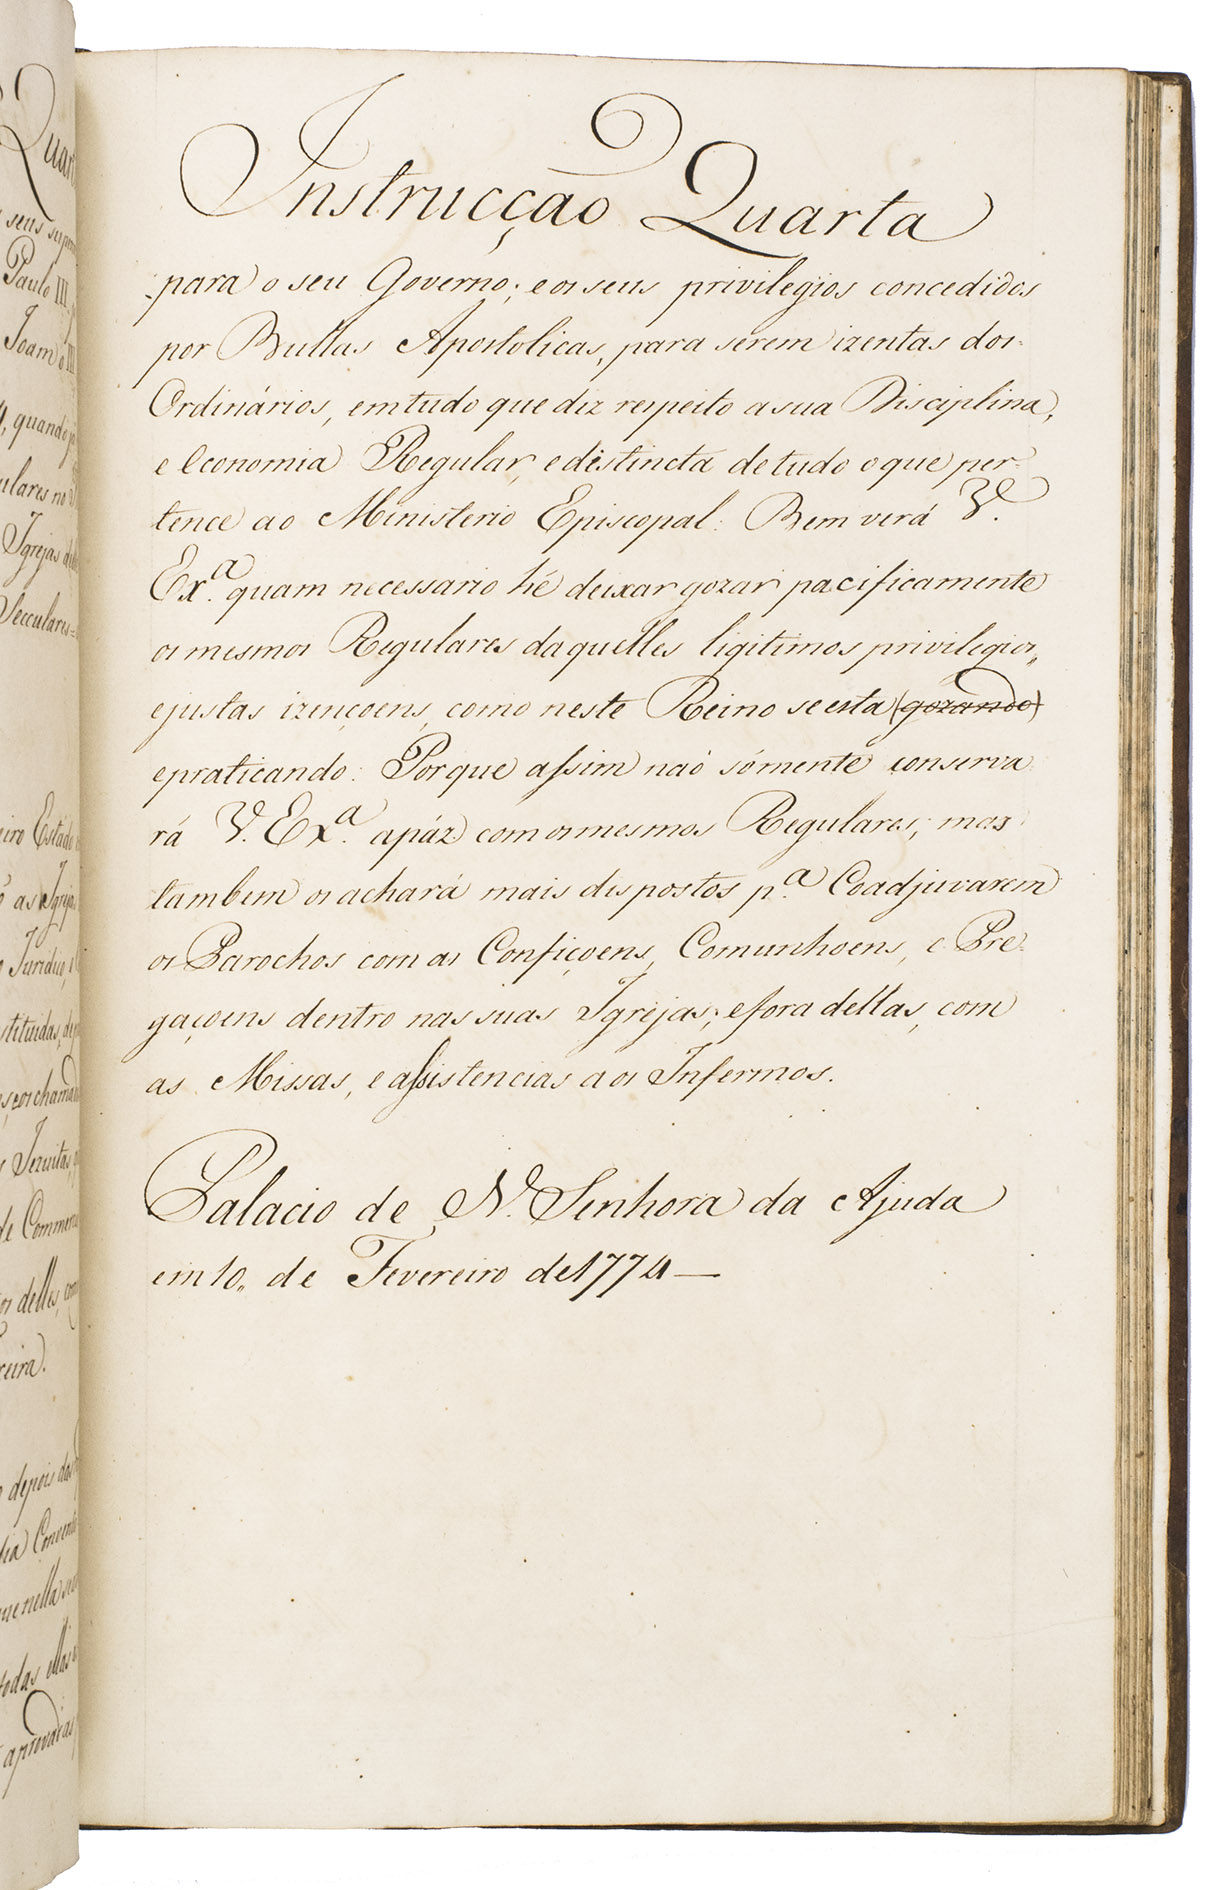 Instrucção Quarta
para o seu Governo; e os seus privilegios concedidos
por Bullas Apostolicas, para serem izentas dos
Ordinários, em tudo que diz respeito a sua Disciplina,
e Economia Regular, e distincta de tudo o que per-
tence ao Ministerio Episcopal: Bem verá V.
Ex.ª quam necessario hé deixar gozar pacificamente
os mesmos Regulares daquelles ligitimos privilegios,,
e justas izençoens, como neste Reino se esta (gozando)
e praticando: Porque assim naõ sómente conserva
rá V. Ex.ª a páz com os mesmos Regulares; mas
tambem os achará mais dispostos p.ª Coadjuvarem
os Parochos com as Confiçoens, Comunhoens, e Pre-
gaçoens dentro nas suas Igrejas; e fora dellas, com
as Missas, e assistencias aos Infermos.
Palacio de N. Senhora da Ajuda
em 10,, de Fevereiro de 1774—
Paulo III
Joam o III
quando
Igrejas
Seculares=
Estado
as Igrejas
Jezuitas
de Commer
delles, com
depois das
todas ellas
aprovadas